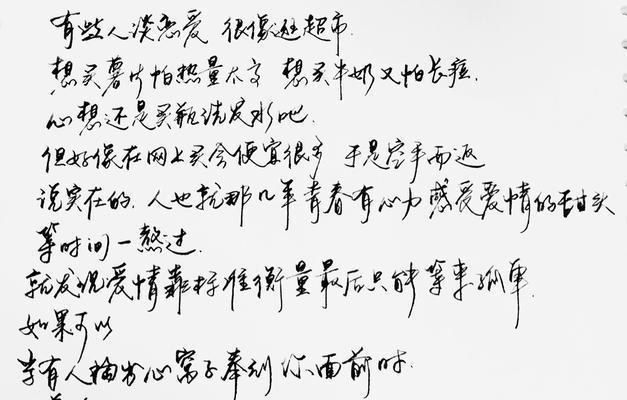 有些人谈恋爱 很像逛超市.
想买薯片怕热量太高 想买牛奶又怕长痘.
心想还是买瓶洗发水吧.
但好像在网上买会便宜很多 于是空手而返
说实在的.人也就那几年青春有心力感受爱情的甜头
等时间一熬过.
就发现爱情靠标准衡量最后只能等来孤单.
如果可以
当有人掏出心窝子奉到你面前时.